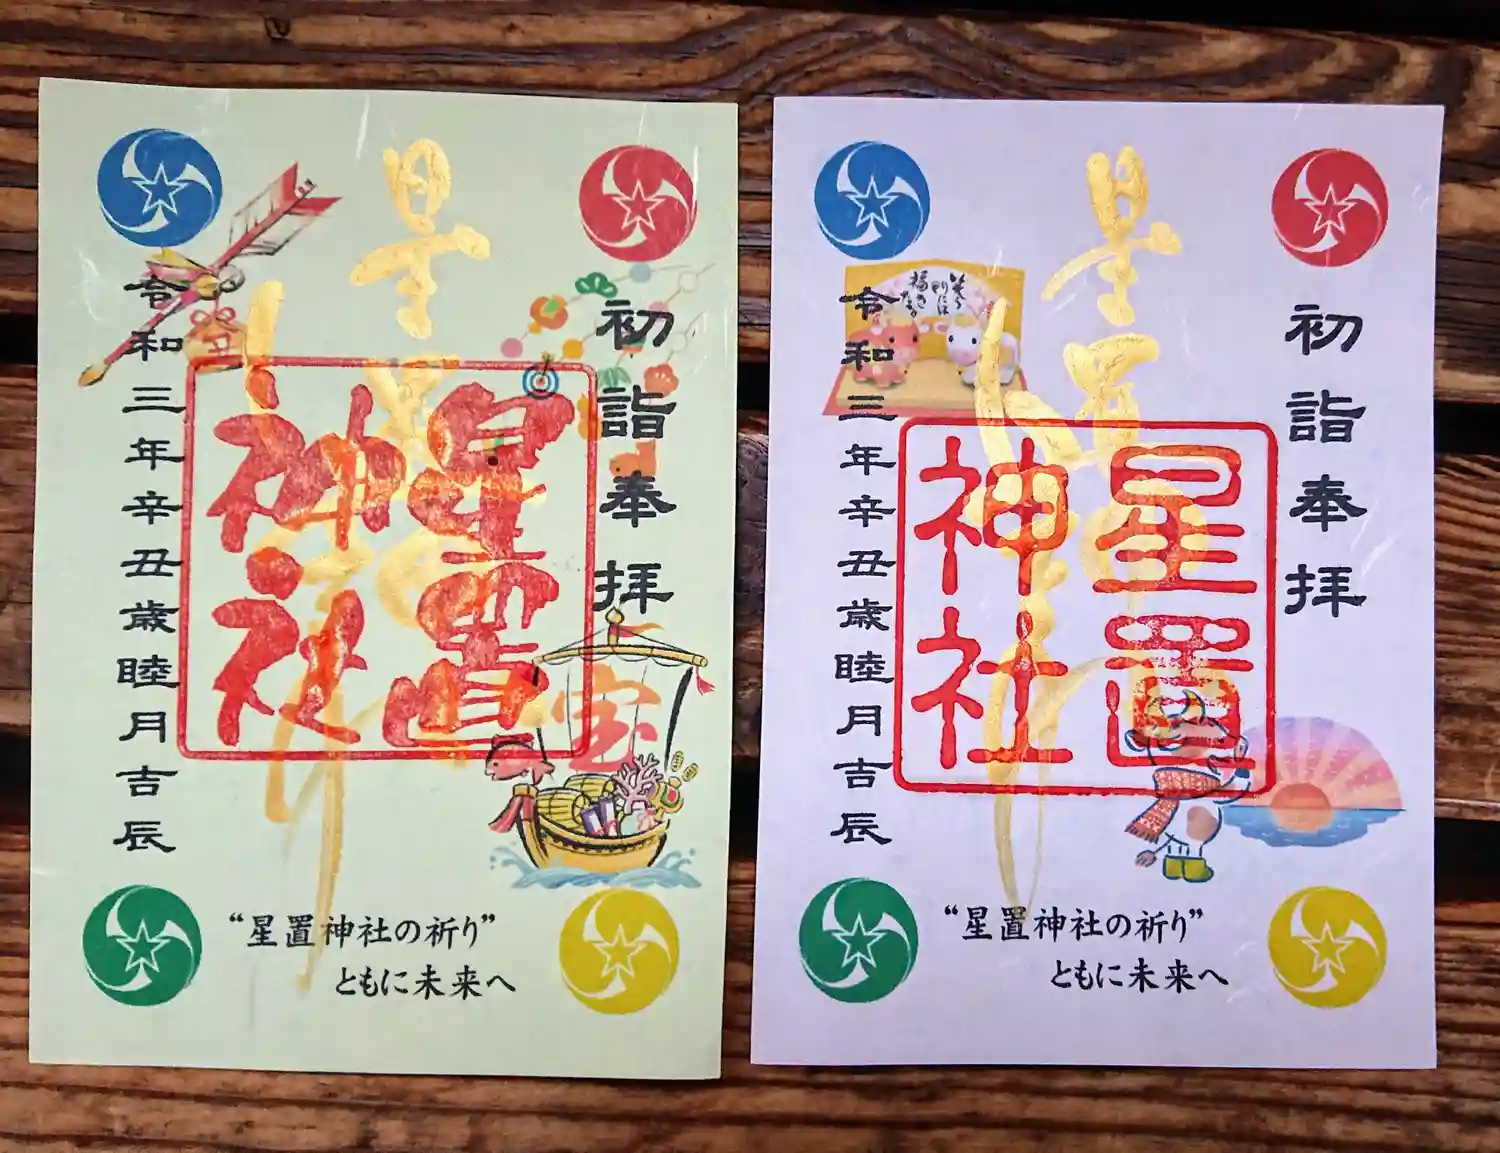 初詣奉拝
星置
神社
星置の祈り
宝
令和三年辛丑歳睦月吉辰
“星置神社の祈り”
ともに未来へ
初詣奉拝
星置
神社
星置の祈り
笑う
門には
福き
たる。
令和三年辛丑歳睦月吉辰
“星置神社の祈り”
ともに未来へ